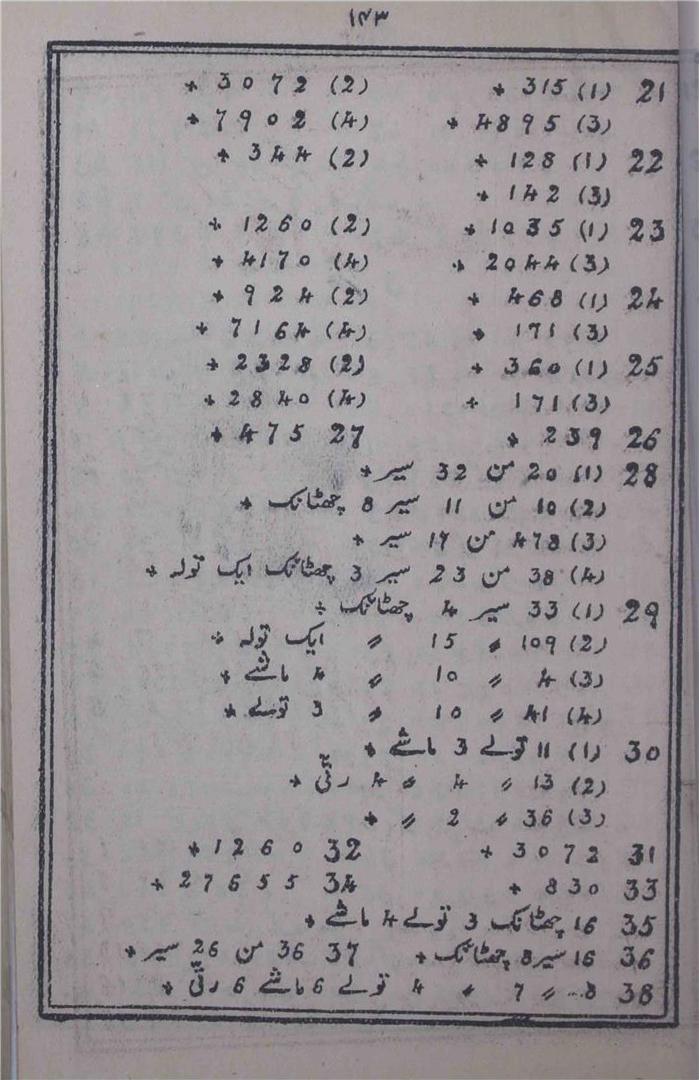 ۱۴۳
21 (1) 315 + (2) 3072 +
(3) 4895 + (4) 7902 +
22 (1) 128 + (2) 344 +
(3) 142 +
23 (1) 1035 + (2) 1260 +
(3) 2044 + (4) 4170 +
24 (1) 468 + (2) 924 +
(3) 171 + (4) 7164 +
25 (1) 360 + (2) 2328 +
(3) 171 + (4) 2840 +
26 239 + 27 475 +
28 (1) 20 من 32 سیر +
(2) 10 من 11 سیر 8 چھٹانک +
(3) 478 من 17 سیر +
(4) 38 من 23 سیر 3 چھٹانک ایک تولہ +
29 (1) 33 سیر 4 چھٹانک +
(2) 109 〃 15 〃 ایک تولہ +
(3) 4 〃 10 〃 4 ماشے +
(4) 41 〃 10 〃 3 تولے +
30 (1) 11 تولے 3 ماشے +
(2) 13 〃 4 〃 4 رتّی +
(3) 36 〃 2 〃 +
31 3072 + 32 1260 +
33 830 + 34 27655 +
35 16 چھٹانک 3 تولے 4 ماشے +
36 16 سیر 8 چھٹانک + 37 36 من 26 سیر +
38 8 〃 7 〃 4 تولے 6 ماشے 6 رتّی +